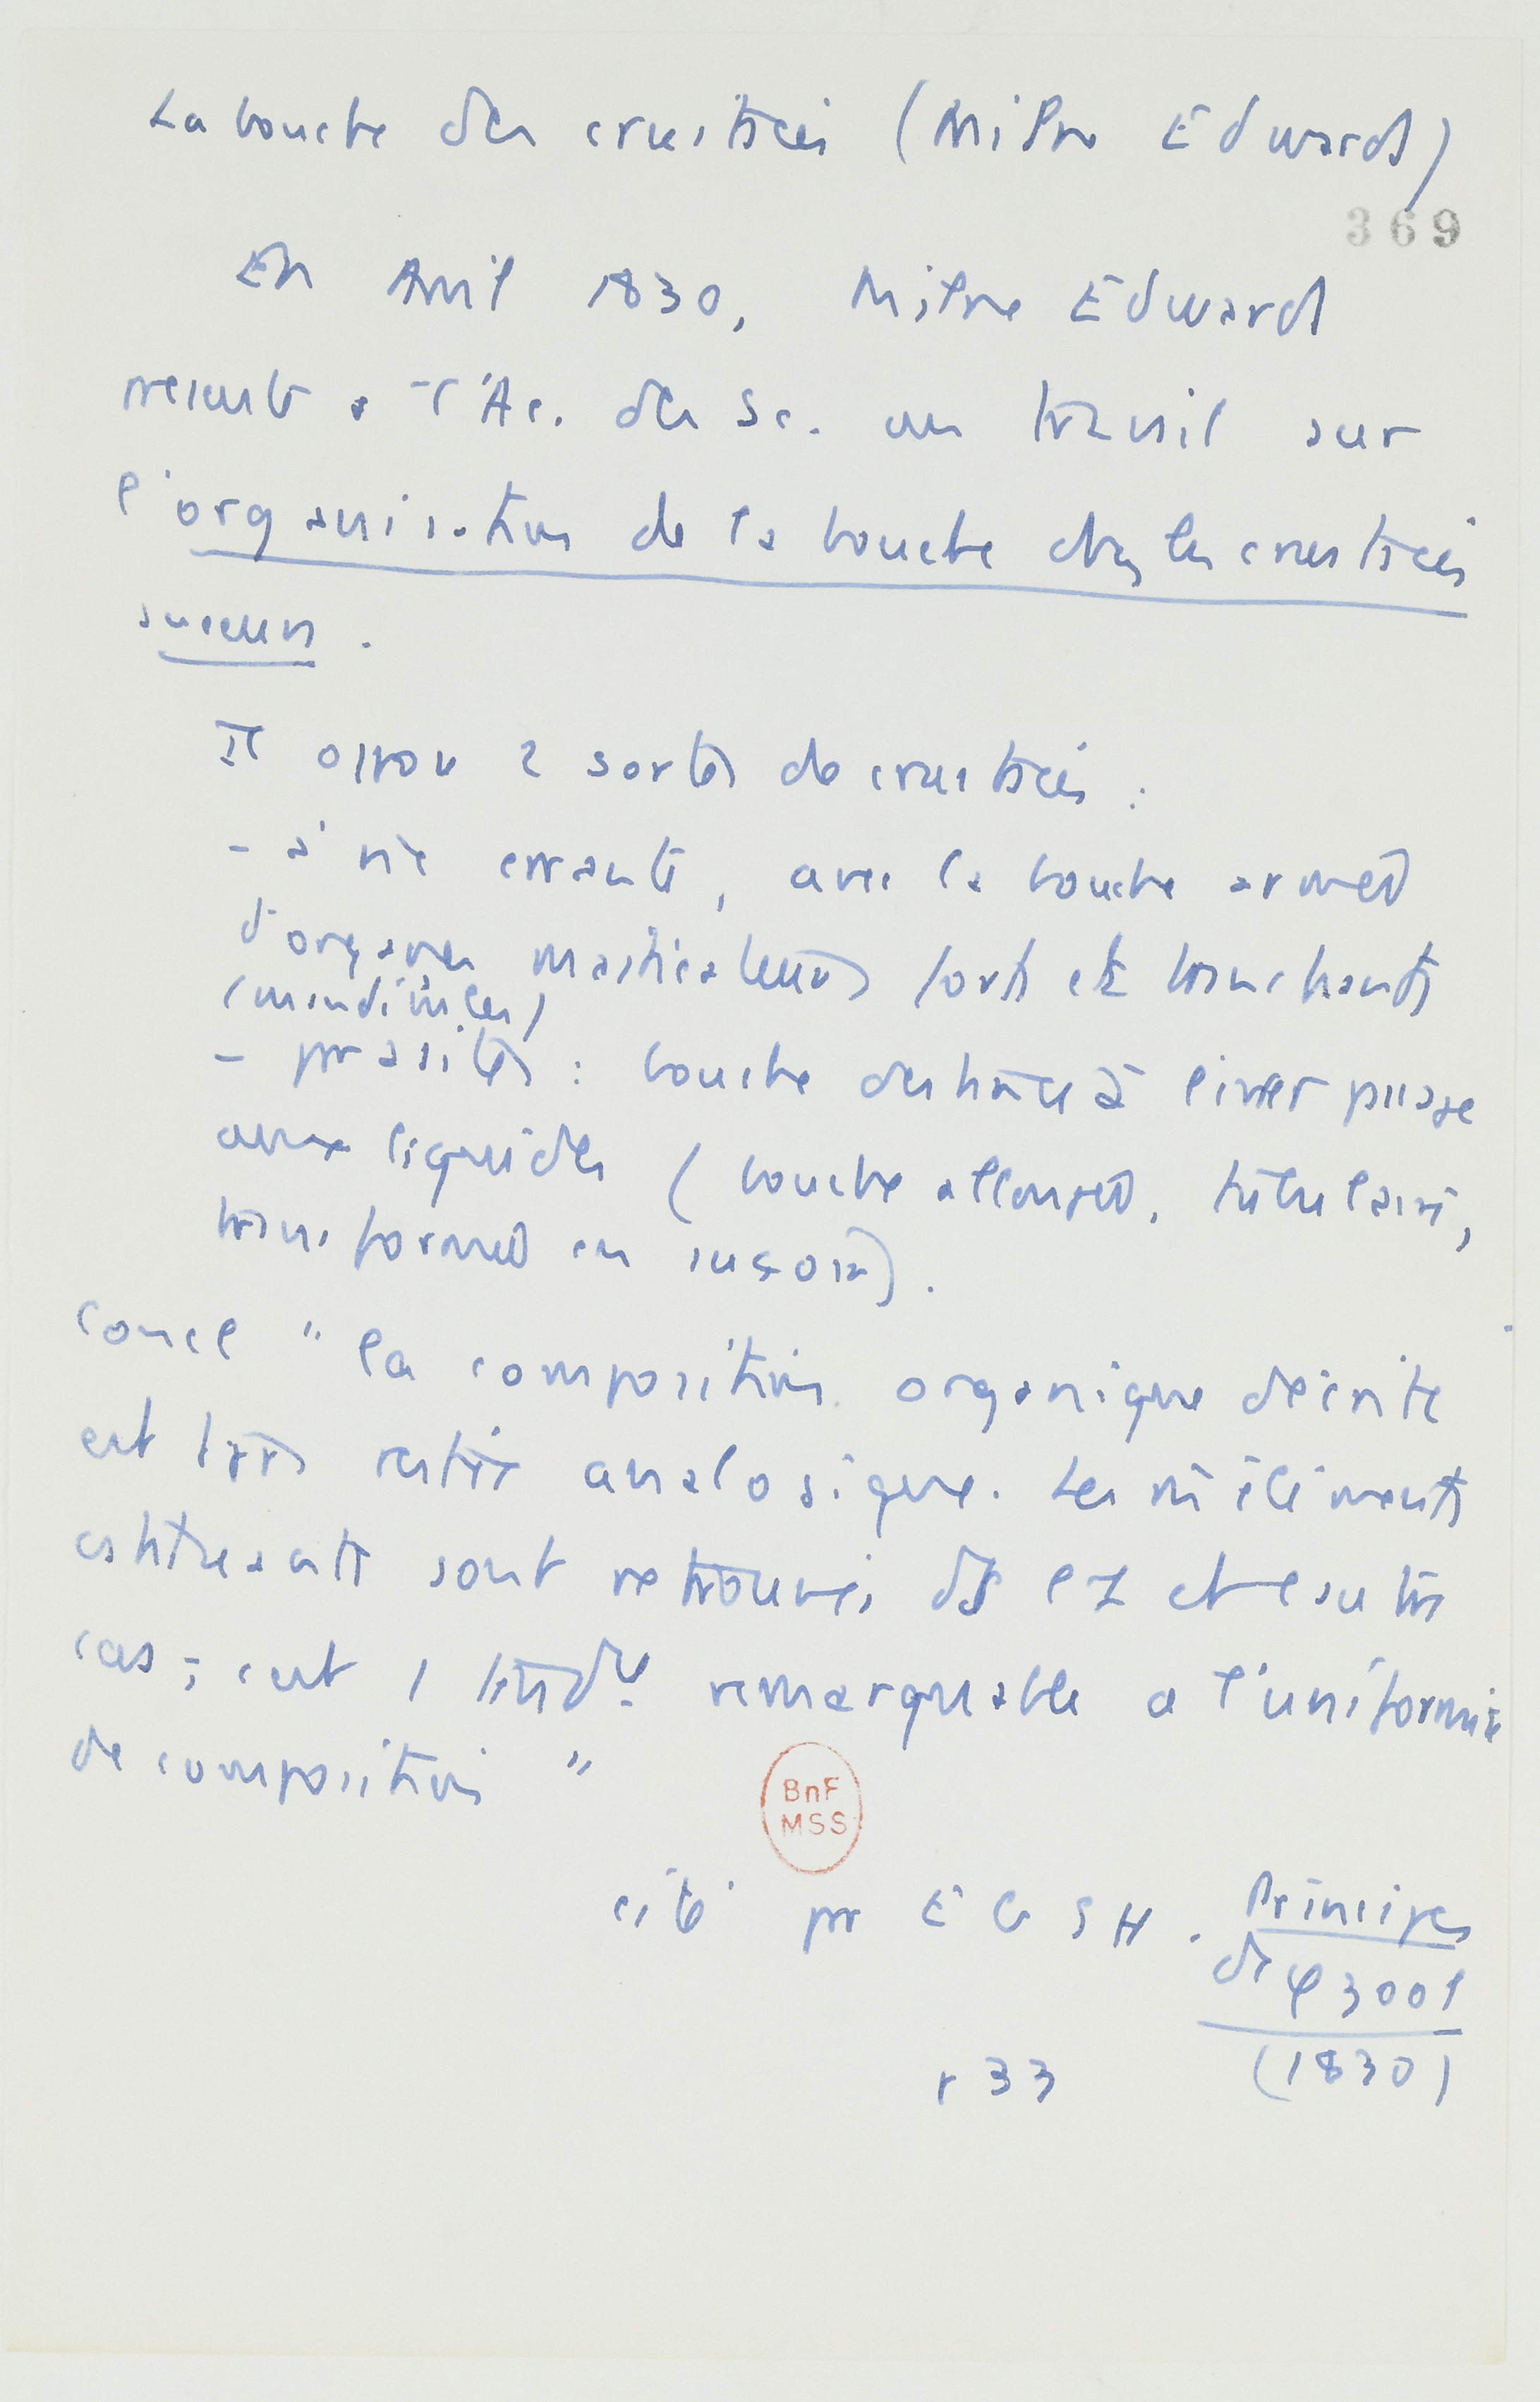 La bouche des crustacés (Milne Edwards)
369
En Avril 1830, Milne Edwards
présente à l'Ac. des Sc. un travail sur
l'organisation de la bouche chez les crustacés
suceurs.
Il 2 sortes de crustacés :
- à vie errante, avec la bouche armée
d'organes masticateurs forts et tranchants
(mandibules)
- parasites : bouche destinée à livrer passage
aux liquides (bouche allongée, tubulaire,
transformée en suçoir).
Concl "la composition organique décrite
est tjrs restée analogique. Les m̂ éléments
constituants sont retrouvés ds l'1 et l'autre
cas ; c'est 1 remarquable à l'uniformité
de composition"
BnF
MSS
cité par E G S H. Principes
de φ zool
(1830)
p 33